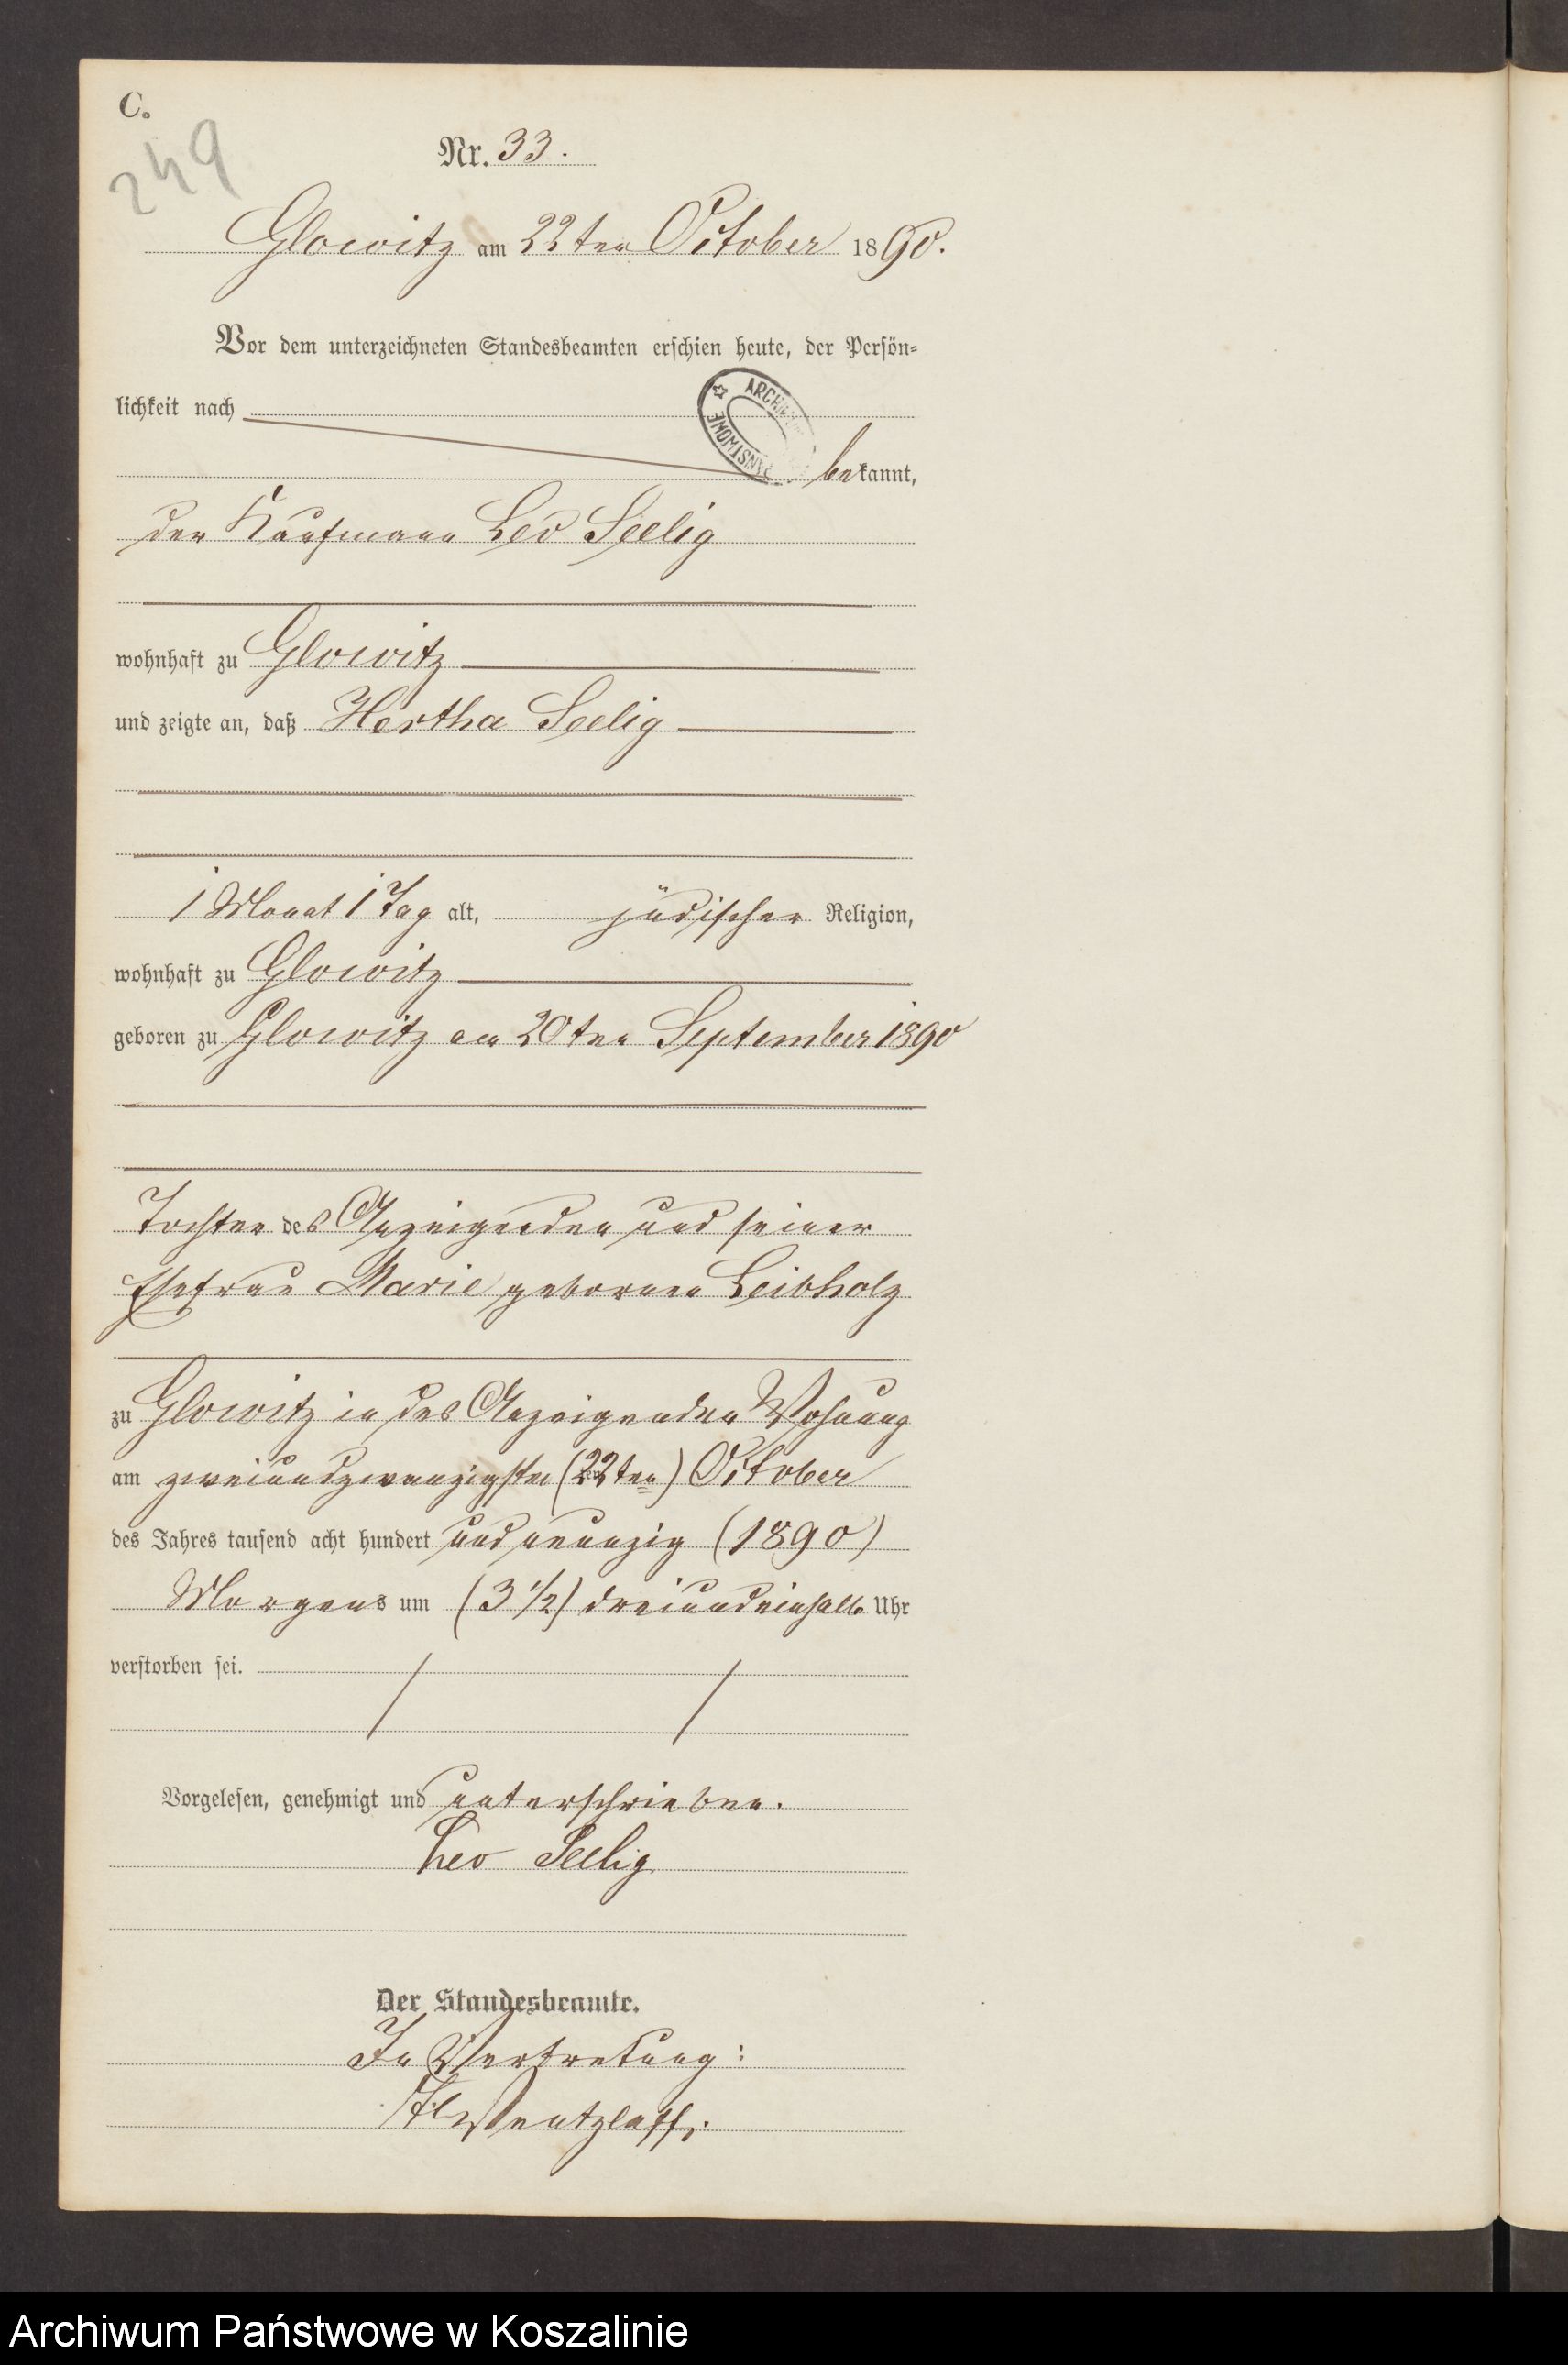 C.
249
Nr. 33.
Glowitz am 22ten October 1890.
Vor dem unterzeichneten Standesbeamten erschien heute, der Persön-
lichkeit nach
ARCHIWUM PAŃSTWOWE
bekannt,
der Kaufmann Leo Seelig
wohnhaft zu Glowitz
und zeigte an, daß Hertha Seelig
1 Monat 1 Tag alt, jüdischer Religion,
wohnhaft zu Glowitz
geboren zu Glowitz am 20ten September 1890
Tochter des Anzeigenden und seiner
Ehefrau Marie geborenen Leibholz
zu Glowitz in des Anzeigenden Wohnung
am zweiundzwanzigsten (22ten) October
des Jahres tausend acht hundert und neunzig (1890)
Morgens um (3 1/2) dreiundeinhalb Uhr
verstorben sei.
Vorgelesen, genehmigt und unterschrieben.
Leo Seelig
Der Standesbeamte.
In Vertretung:
Wentzlaff.
Archiwum Państwowe w Koszalinie